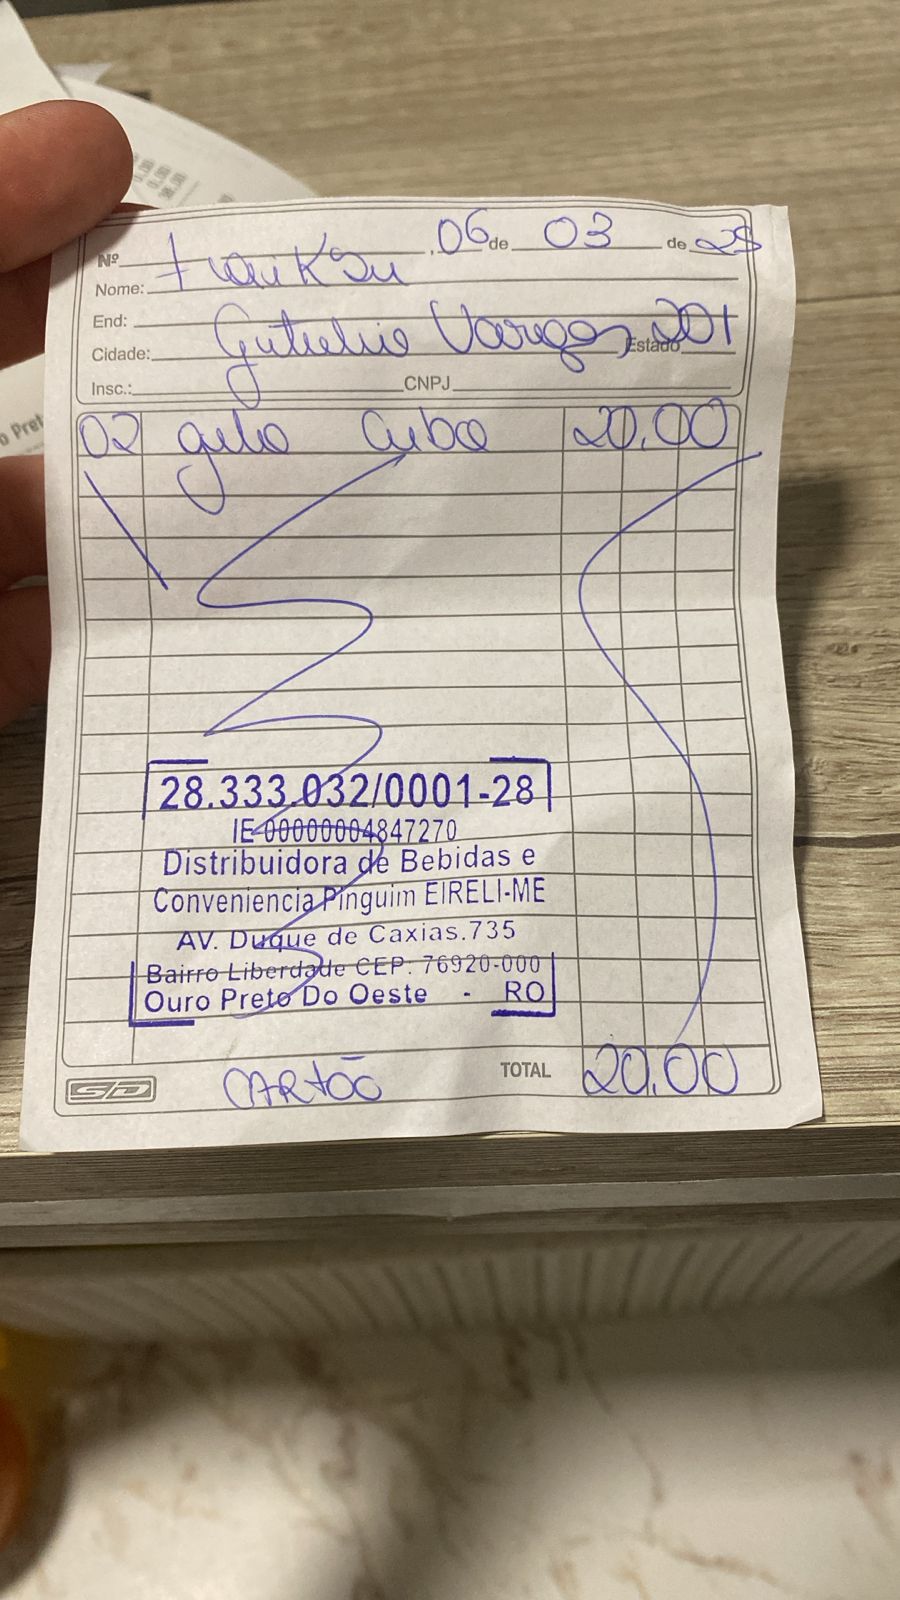 Nº 06 de 03 de 25
Nome:
End:
Getulio Vargas, 201
Cidade: Estado
Insc.: CNPJ
02 gelo cubo 20,00
28.333.032/0001-28
IE-00000004847270
Distribuidora de Bebidas e
Conveniencia Pinguim EIRELI-ME
AV. Duque de Caxias.735
Bairro Liberdade CEP: 76920-000
Ouro Preto Do Oeste - RO
SD CARTÃO TOTAL 20,00